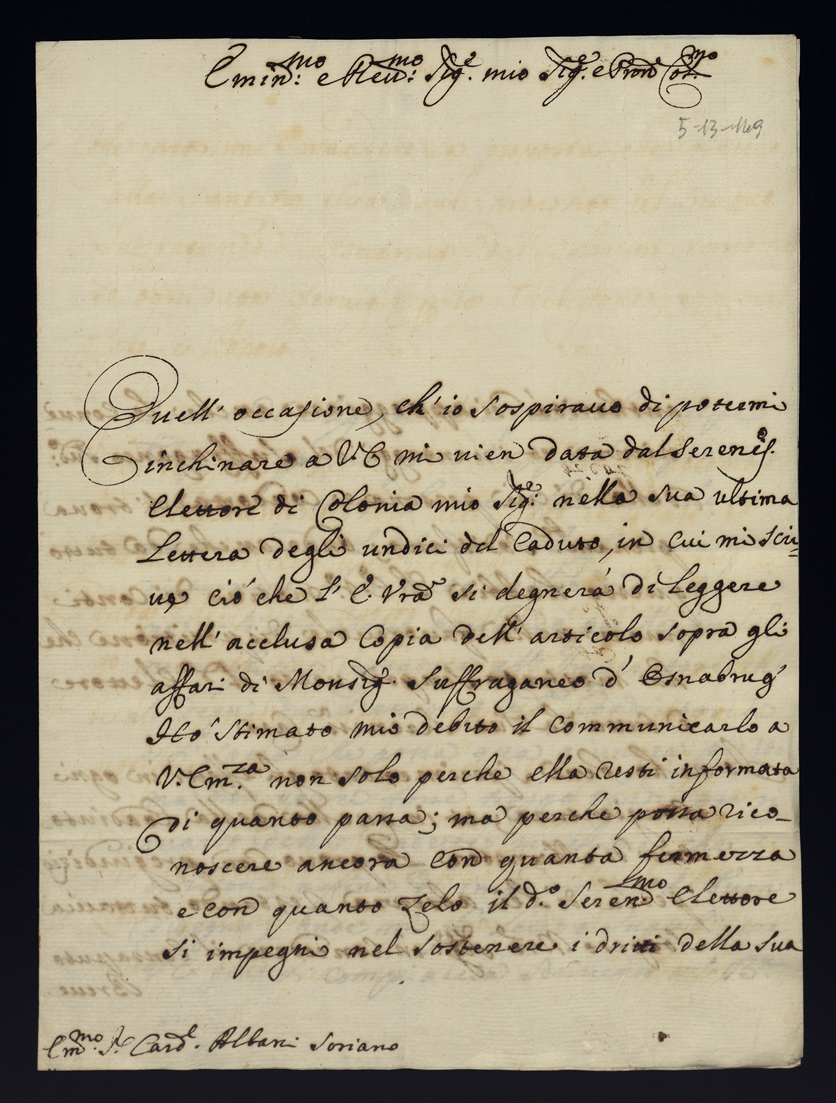 Emin.mo e Reu.mo Sig.e mio Sig.e e Pron Col.mo
5-13-
Quell' occasione, ch' io sospirauo di potermi
inchinare a V.E mi uien data dal Serenis.
Elettore di Colonia mio Sig.re nella sua ultima
Lettera degli undici del Caduto, in cui mi scri=
ue ció che l' E. Vra si degnerá di leggere
nell' acclusa Copia dell' articolo sopra gli
affari di Monsig. Suffraganeo d' Osnabrug'
Hó stimato mio debito il communicarlo a
V.Em.za non solo perche ella resti informata
di quanto passa; ma perche possa rico-
noscere ancora con quanta fermezza
e con quanto Zelo il d.o Seren.mo Elettore
si impegni nel sostenere i dritti della sua
Em.mo S.r Card.l Albani Soriano